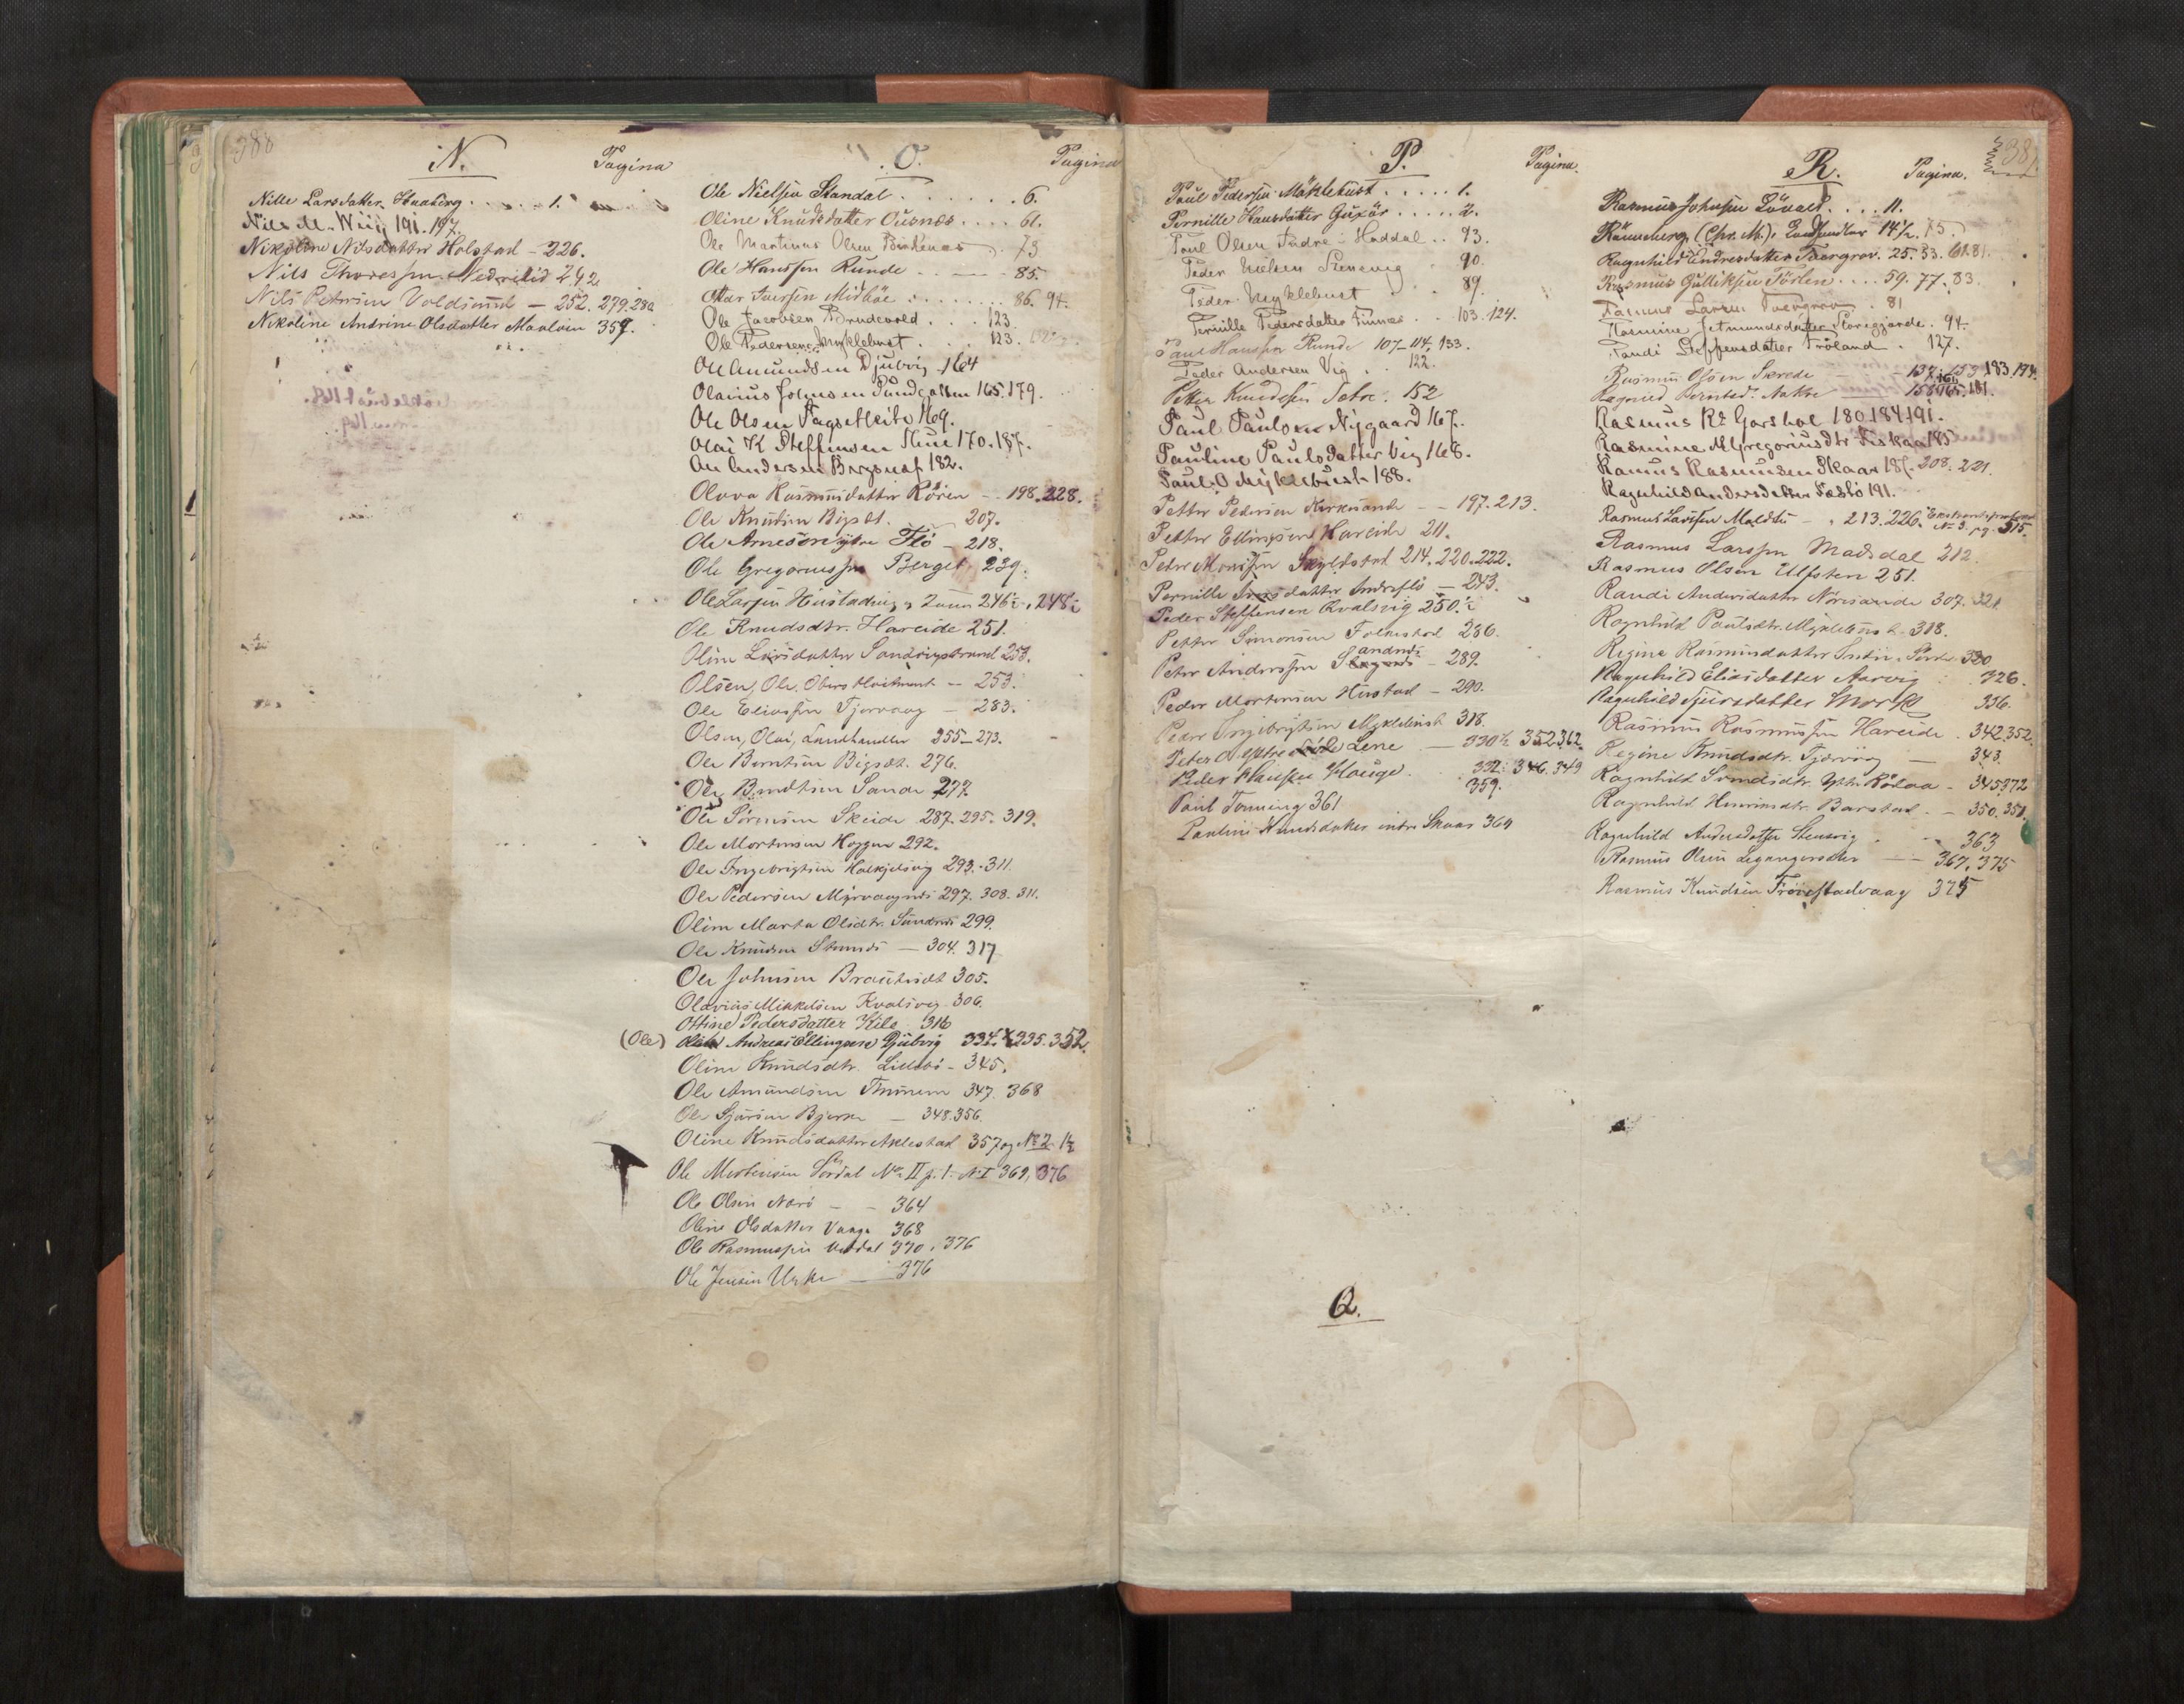 388
N.
Pagina
Nille Larsdatter Haaberg . . . . . 1.
Nils M. Wiig 191. 197.
Nikoline Nilsdatter Holstad - 226.
Nils Thoressen Nedrelid 242
Nils Petersen Voldsund - 252. 279. 280
Nikoline Andrine Olsdatter Maaløen 357.
O.
Pagina
Ole Nielsen Standal . . . . . . . 6.
Oline Knudsdatter Ousnæs . . . . 61.
Ole Martinus Olsen Birkenæs . . 73
Ole Hanssen Runde . . . - - 85
Ottar Iversen Mittbøe . . . . . . . 86. 94.
Ole Jacobsen Brudevold . . . 123.
Ole Pedersen Myklebust . . . 123.
Ole Amundsen Djubvig 164
Olavius Johnsen Sundgatten 165. 179.
Ole Olsen 169.
Olai K Steffensen Thue 170. 187.
Ole Andersen Brygsnæs 182.
Olava Rasmusdatter Røren - - 198. 228.
Ole Knudsen Bigset. 207.
Ole Arnesen ytre Flø - 218.
Ole Gregoriussen Berget 239.
Ole Larsen Hustadnæs 246½, 248½
Ole Knudsdtr. Hareide 251.
Oline Larsdatter Sandvigstrand 253.
Olsen, Ole, Oberstløitnant - 253.
Ole Eliassen Tjervaag - 283.
Olsen, Olai, Landhandler 255-273.
Ole Berntsen Bigset. 276.
Ole Berndtsen Sande 277.
Ole Sørensen Skeide 287. 295. 319.
Ole Mortensen Haggen 292.
Ole Ingebrigtsen Halkjelsvig 293. 311.
Ole Pedersen Myrvaagnæs 297. 308. 311.
Oline Marta Olsdtr. Sundnæs 299.
Ole Knudsen - 304. 317
Ole Johnsen Brautaset 305.
Olavius Mikkelsen Kvalsvig 306.
Ottine Pedersdatter Kile 316
(Ole) Andreas Ellingsen Djubvig 334. 335. 352.
Oline Knudsdtr. Lillebø - 345.
Ole Amundsen 347. 368
Ole Sjursen Bjerke - 348. 356.
Oline Knudsdatter Aklestad 357 og № 2 1½
Ole Mortensen Sørdal No II p. 1. N. I 369, 376
Ole Olsen Nærø - - 364
Oline Olsdatter Vaage 368
Ole Rasmussen 370, 376
Ole Jensen Urke - 376
P.
Pagina.
Paul Pedersen Møklebust . . . . . 1.
Pernille Hansdatter Guxør . . . . . 2.
Paul Olsen Indre-Haddal . . 93.
Peder Nielsen Stenevig . 90.
Peder Myklebust . . 89.
Pernille Pedersdatter Vinnæs . . 103. 124.
Paul Hanssen Runde 107-114, 133.
Peder Andersen Vig . . 122.
Peter Knudssen Sætre. 152
Paul Paulsen Nygaard 167.
Pauline Paulsdatter Vig 168.
Paul O Myklebust 188.
Petter Pedersen Kirkenæs - - 197. 213.
Petter Ellingsen Hareide 211.
Peter Monsen Skylstad 214. 220. 222.
Pernille datter Indreflø - 243.
Peder Steffensen Qvalsvig 250½
Petter Simonsen Folkestad 286.
Peter Anderssen andnæs - 289.
Peder Mortensen Hustad - 290.
Peder Ingebrigtsen Myklebust 318.
Peter A. Ytre Lene - 330½ 352. 362.
Peder Hansen Hauge. 332. 346. 349
359.
Paul Tonning 361
Pauline Knudsdatter indre Skaar 364
Q.
R.
Pagina.
Rasmus Johnsen Løvald . . . . 11.
Rønneberg, (Chr. M.), Landhandler 14½. 75.
Ragnhild Endresdatter Tværgrov. 25. 33. 61. 81.
Rasmus Gulliksen Tørlen . . . . 59. 77. 83.
Rasmus Larsen Tværgrov . 81
Rasmine Jetmundsdatter Storegjærde. 94.
Randi Steffensdatter Frøland . 127.
Rasmus Olsen Særede - - 137. 153. 183. 194.
Ragnild Berntsd. Aakre 158. 165. 181.
Rasmus Rs Garshol 180. 184. 191.
Rasmine M. Gregoriusdtr Fiskaa 185
Rasmus Rasmussen Skaar 187. 208. 221.
Ragnhild Andersdatter Sæbø 191.
Rasmus Larssen Moldtu - . 213. 226. № 3. pg. 315.
Rasmus Larssen Madsdal 212.
Rasmus Olsen Ulfsten 251.
Randi Andersdatter Nøresande 307. 321
Ragnhild Paulsdtr. Myklebust - 318.
Regine Rasmusdatter 320
Ragnhild Eliasdatter Aarvig 326.
Ragnhild Sjursdatter Mork 336.
Rasmus Rasmussen Hareide . 342. 352.
Regine Knudsdtr. Tjervaag - 343.
Ragnhild Svendsdtr. Ytre Rødaa - 345. 372
Ragnhild Henriksdtr. Barstad - 350. 351.
Ragnhild Andersdatter Stensvig . - 363
Rasmus Olsen Leganger - - 367. 375
Rasmus Knudsen Frøiestadvaag 375